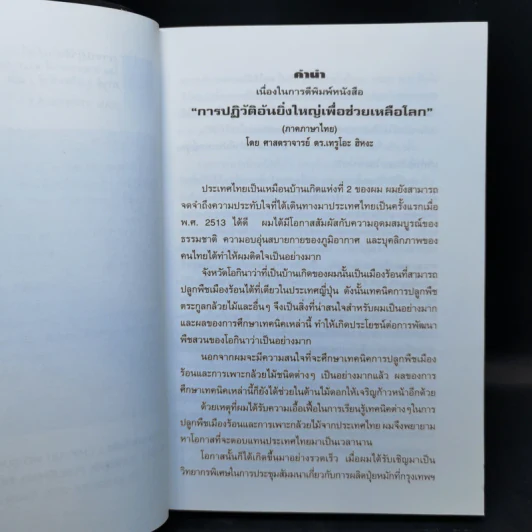 คำนำ
เนื่องในการตีพิมพ์หนังสือ
"การปฏิวัติอันยิ่งใหญ่เพื่อช่วยเหลือโลก"
(ภาคภาษาไทย)
โดย ศาสตราจารย์ ดร.เทรูโอะ ฮิหงะ
ประเทศไทยเป็นเหมือนบ้านเกิดแห่งที่ 2 ของผม ผมยังสามารถ
จดจำถึงความประทับใจที่ได้เดินทางมาประเทศไทยเป็นครั้งแรกเมื่อ
พ.ศ. 2513 ได้ดี ผมได้มีโอกาสสัมผัสกับความอุดมสมบูรณ์ของ
ธรรมชาติ ความอบอุ่นสบายกายของภูมิอากาศ และบุคลิกภาพของ
คนไทยได้ทำให้ผมติดใจเป็นอย่างมาก
จังหวัดโอกินาว่าที่เป็นบ้านเกิดของผมนั้นเป็นเมืองร้อนที่สามารถ
ปลูกพืชเมืองร้อนได้ที่เดียวในประเทศญี่ปุ่น ดังนั้นเทคนิคการปลูกพืช
ตระกูลกล้วยไม้และอื่นๆ จึงเป็นสิ่งที่น่าสนใจสำหรับผมเป็นอย่างมาก
และผลของการศึกษาเทคนิคเหล่านี้ ทำให้เกิดประโยชน์ต่อการพัฒนา
พืชสวนของโอกินาว่าเป็นอย่างมาก
นอกจากผมจะมีความสนใจที่จะศึกษาเทคนิคการปลูกพืชเมือง
ร้อนและการเพาะกล้วยไม้ชนิดต่างๆ เป็นอย่างมากแล้ว ผลของการ
ศึกษาเทคนิคเหล่านี้ก็ยังได้ช่วยในด้านไม้ดอกให้เจริญก้าวหน้าอีกด้วย
ด้วยเหตุที่ผมได้รับความเอื้อเฟื้อในการเรียนรู้เทคนิคต่างๆในการ
ปลูกพืชเมืองร้อนและการเพาะกล้วยไม้จากประเทศไทย ผมจึงพยายาม
หาโอกาสที่จะตอบแทนประเทศไทยมาเป็นเวลานาน
โอกาสนั้นก็ได้เกิดขึ้นมาอย่างรวดเร็ว เมื่อผมได้รับเชิญมาเป็น
วิทยากรพิเศษในการประชุมสัมมนาเกี่ยวกับการผลิตปุ๋ยหมักที่กรุงเทพฯ